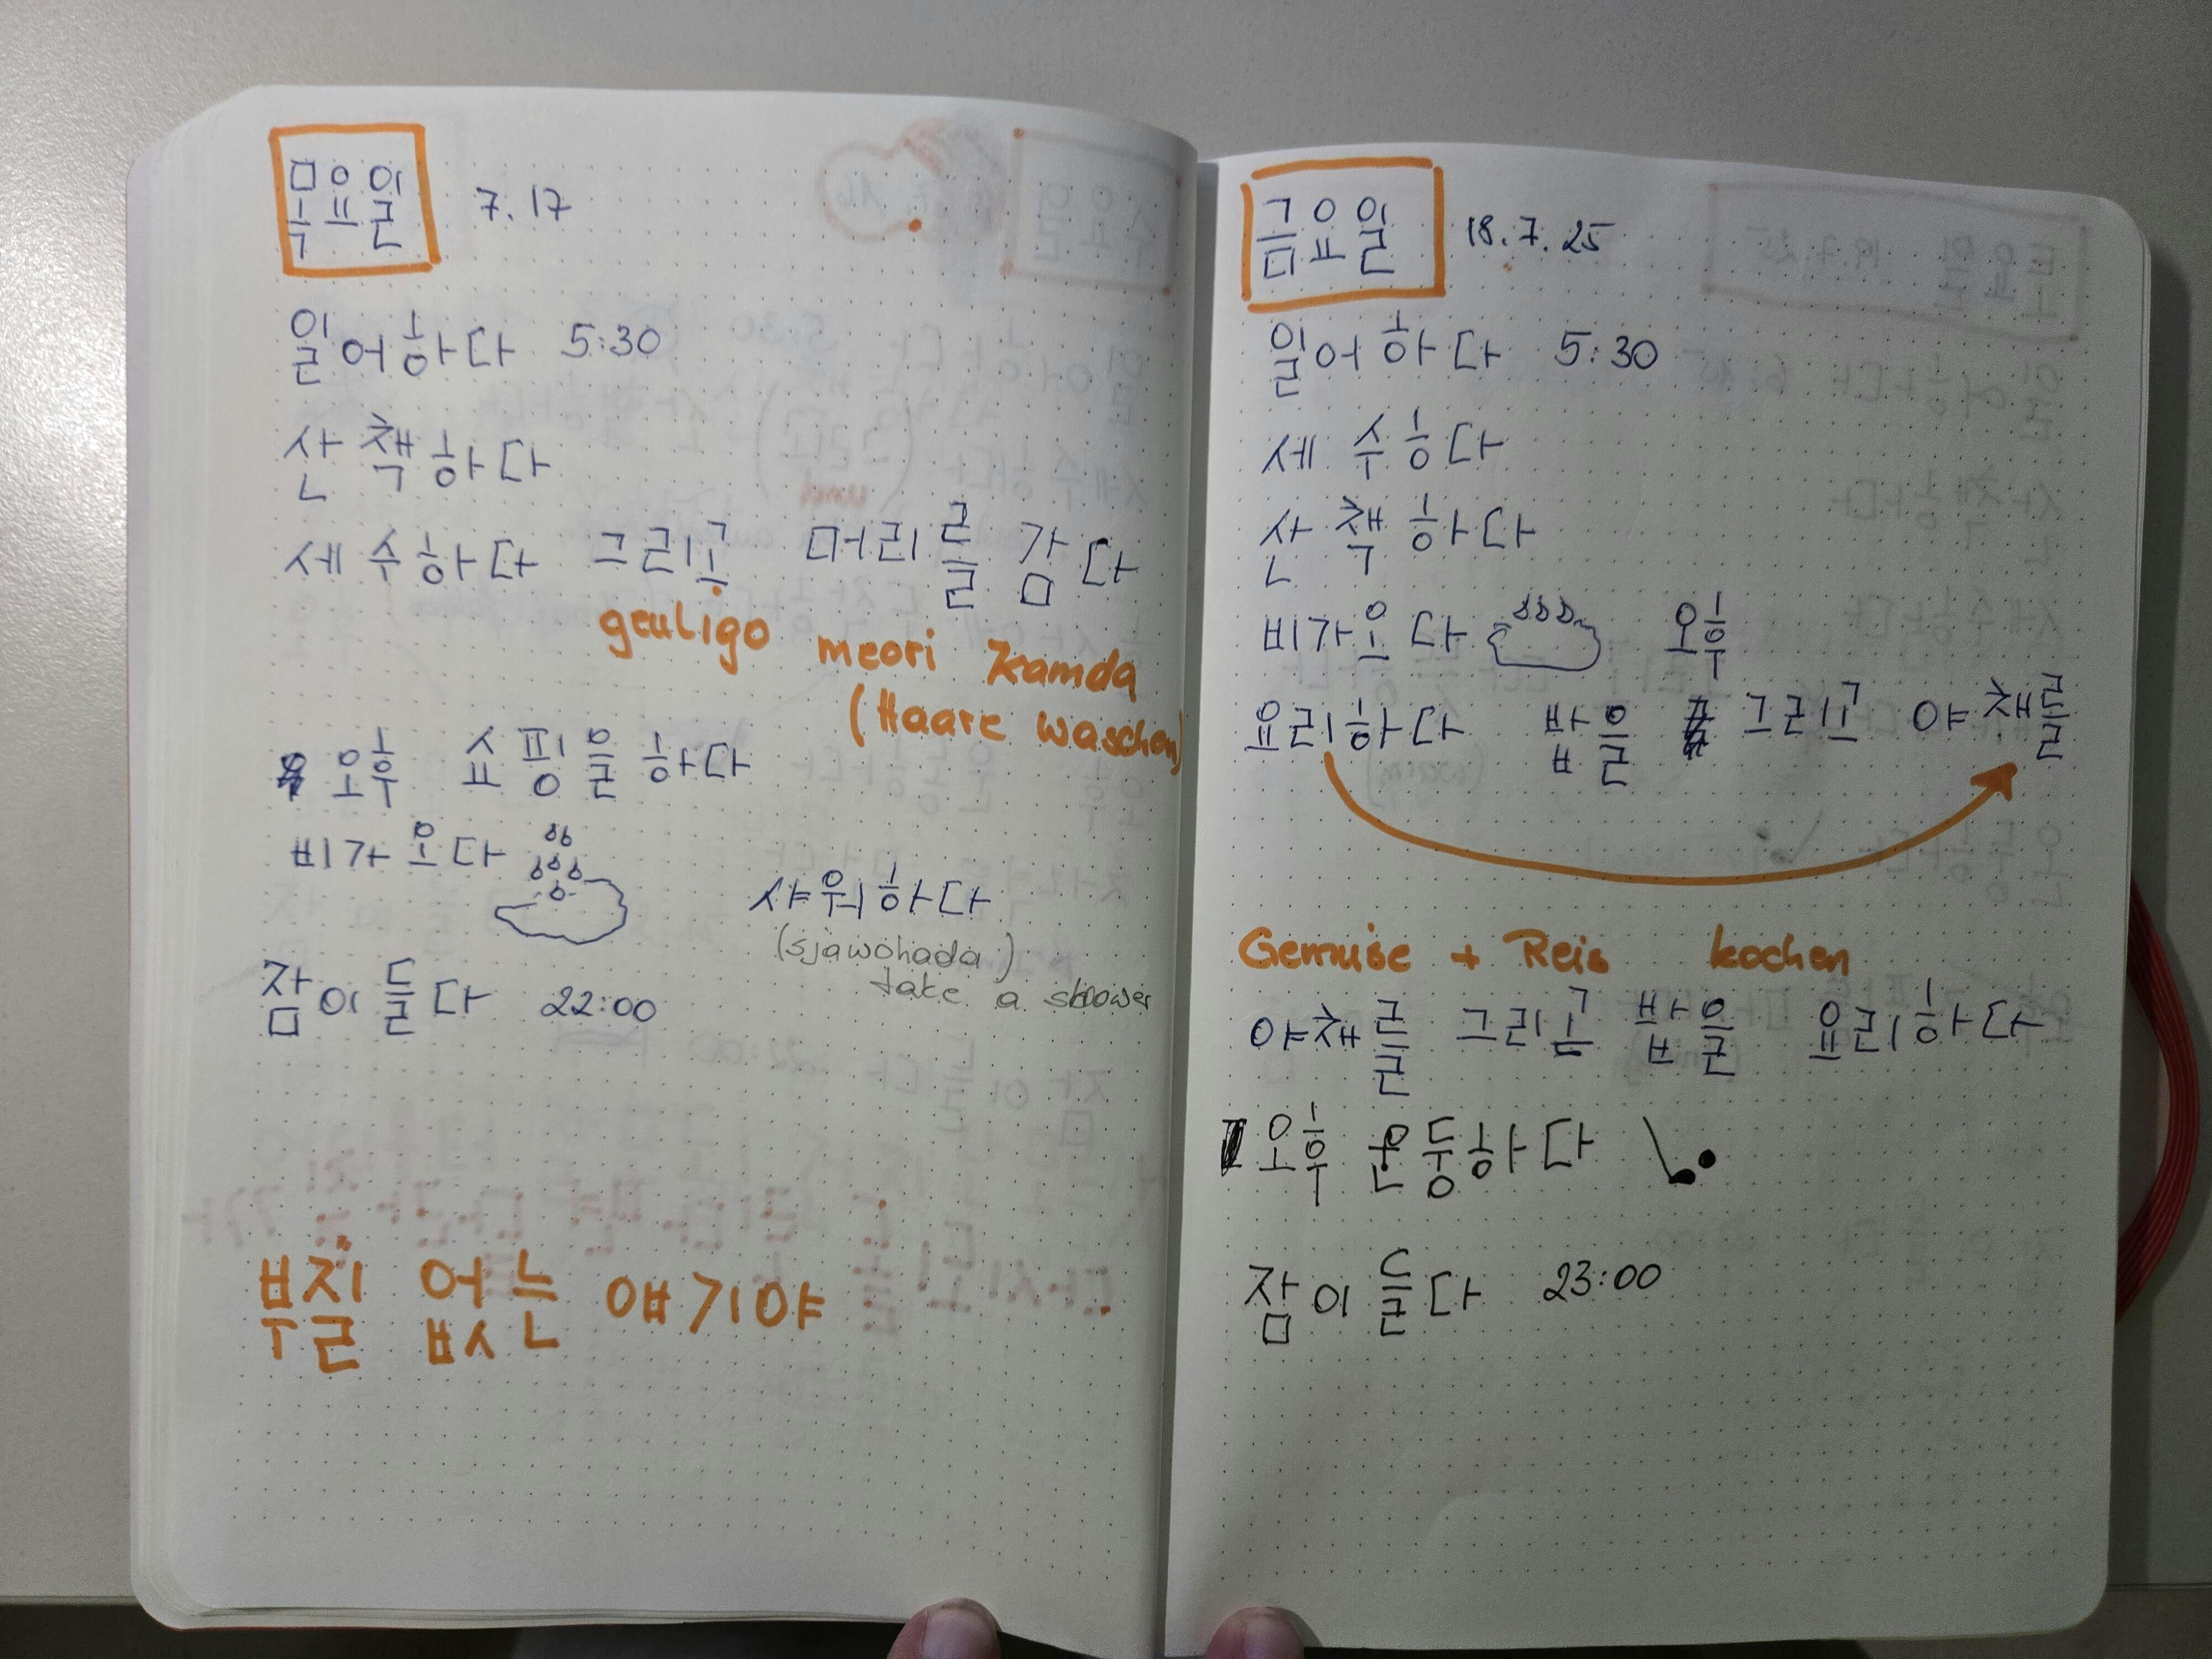 목요일 7.17
일어하다 5:30
산책하다
세수하다 그리고 머리를 감다
geuligo meori kamda
(Haare waschen)
오후 쇼핑을 하다
비가 오다
샤워하다
(sjawohada)
take a shower
잠이 들다 22:00
부질 없는 얘기야
금요일 18.7.25
일어하다 5:30
세수하다
산책하다
비가오다 오후
요리하다 밥을 그리고 야채를
Gemüse + Reis kochen
야채를 그리고 밥을 요리하다
오후 운동하다
잠이 들다 23:00